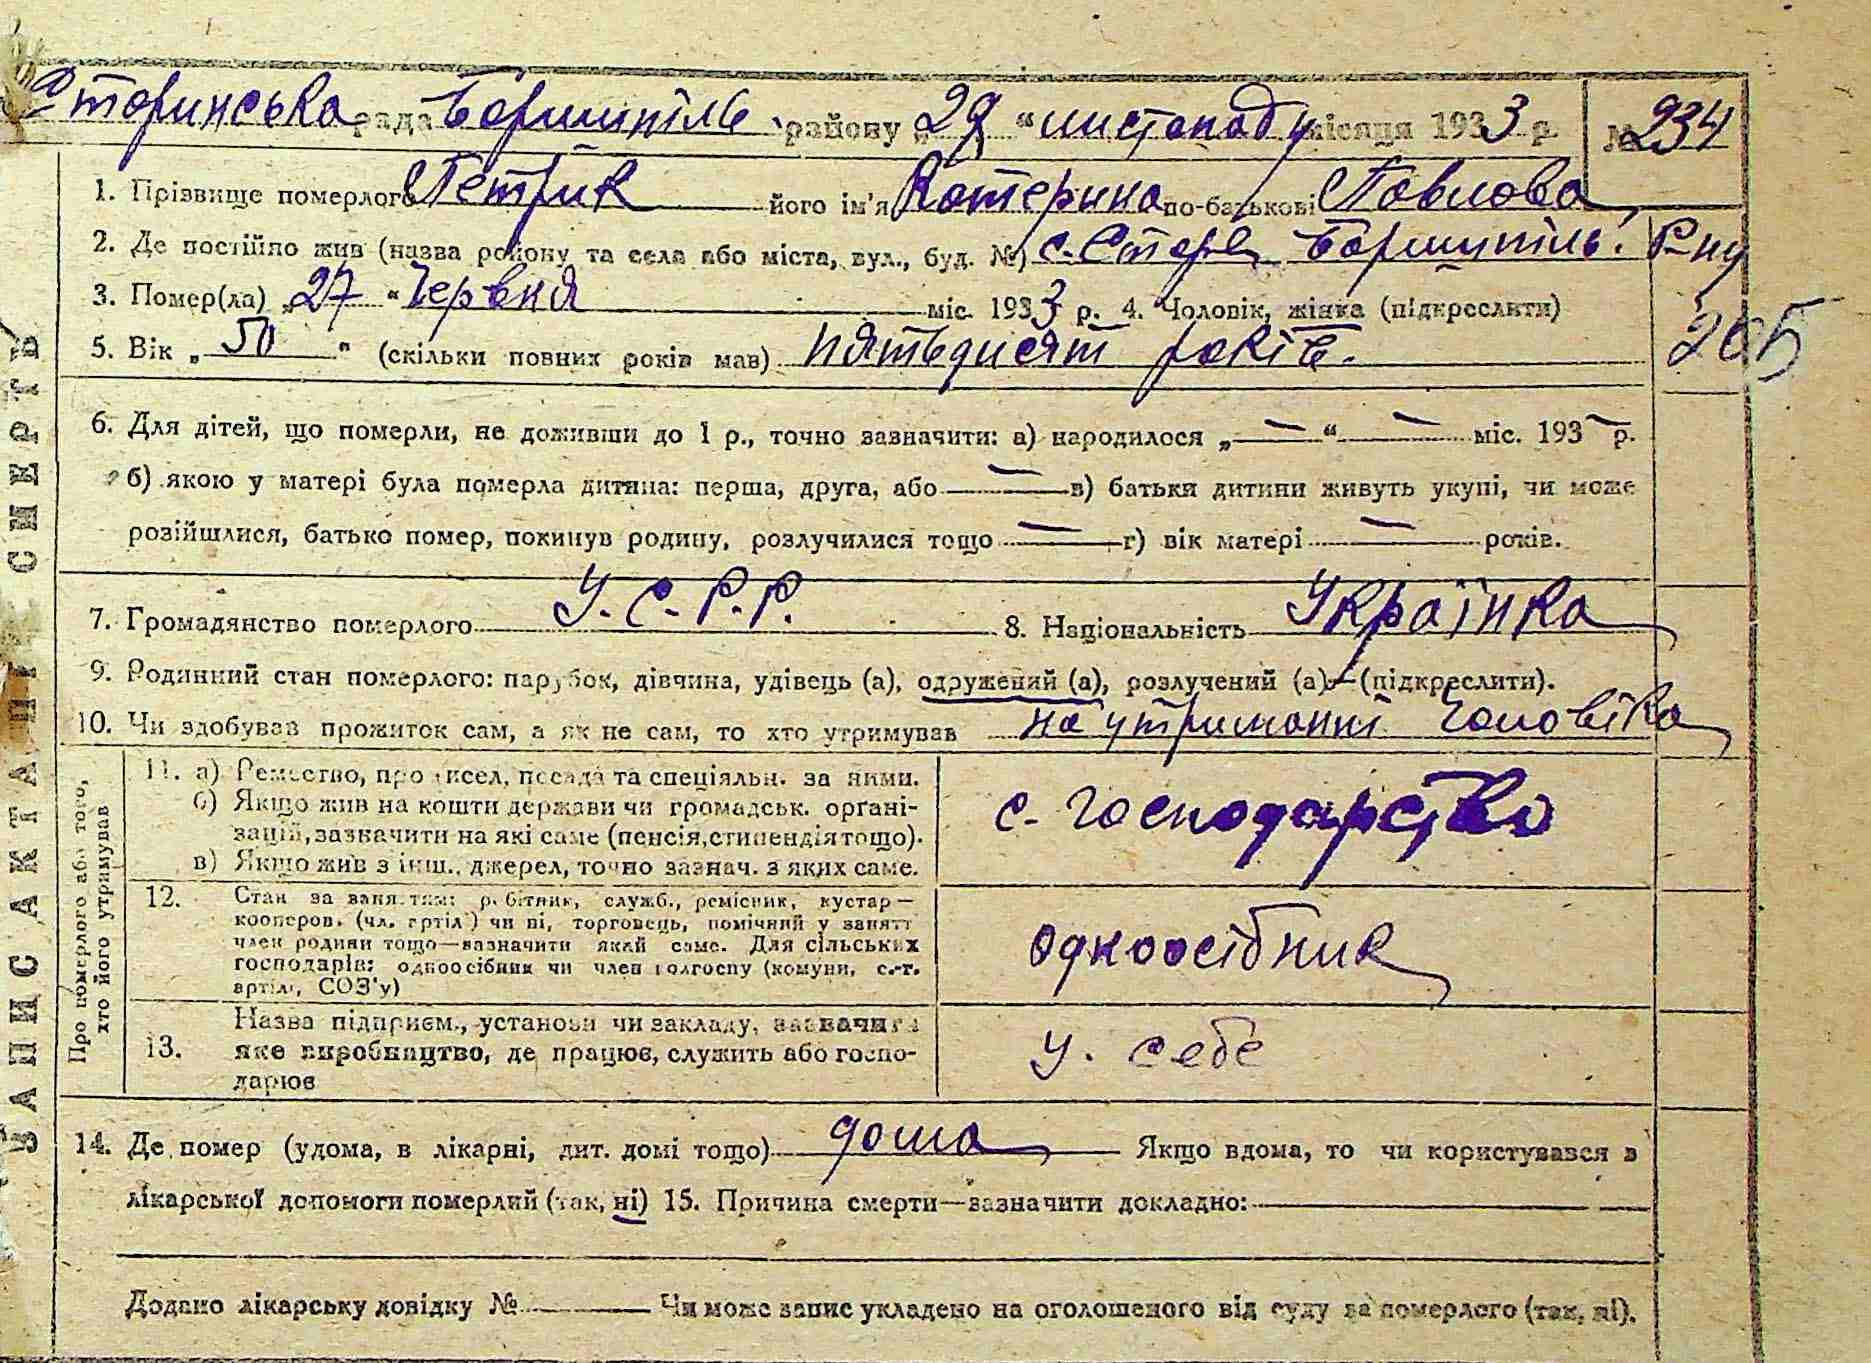 Старинська рада Боришпіль району „29 “ листопаду місяця 1933 р. № 234
1. Прізвище померлого Петрик його ім'я Катерина по-батькові Павлова
2. Де постійно жив (назва району та села або міста, вул., буд. №) с. Старе Боришпіль. Р-ну
3. Помер(ла) „27 “ Червня міс. 1933 р. 4. Чоловік, жінка (підкреслити)
5. Вік „ 50 “ (скільки повних років мав) пятьдисят років.
6. Для дітей, що померли, не доживши до 1 р., точно зазначити: а) народилося „ — “ — міс. 193 — р.
б) якою у матері була померла дитина: перша, друга, або — в) батьки дитини живуть укупі, чи може
розійшлися, батько помер, покинув родину, розлучилися тощо — г) вік матері — років.
7. Громадянство померлого У.С.Р.Р. 8. Національність Українка
9. Родинний стан померлого: парубок, дівчина, удівець (а), одружений (а), розлучений (а)—(підкреслити).
10. Чи здобував прожиток сам, а як не сам, то хто утримував на утриманні чоловіка
ЗАПИС АКТА ПР СМЕРТЬ
Про померлого або того, хто його утримував
11. а) Ремество, промисел, посада та спеціяльн. за ними.
б) Якщо жив на кошти держави чи громадськ. органі-
зацій, зазначити на які саме (пенсія, стипендія тощо).
в) Якщо жив з інш. джерел, точно зазнач. з яких саме.
с. господарство
12. Стан за заняттям: робітник, служб., ремісник, кустар—
кооперов. (чл. артілі) чи ні, торговець, помічний у занятт
член родини тощо—зазначити який саме. Для сільських
господарів: одноосібник чи член колгоспу (комуни, с.-г.
артілі, СОЗ'у)
одноосібник
13. Назва підприєм., установи чи закладу, зазначити
яке виробництво, де працює, служить або госпо-
дарює
у. себе
14. Де помер (удома, в лікарні, дит. домі тощо) дома Якщо вдома, то чи користувався в
лікарської допомоги померлий (так, ні) 15. Причина смерти—зазначити докладно:
Додано лікарську довідку № Чи може запис укладено на оголошеного від суду за померлого (так, ні).